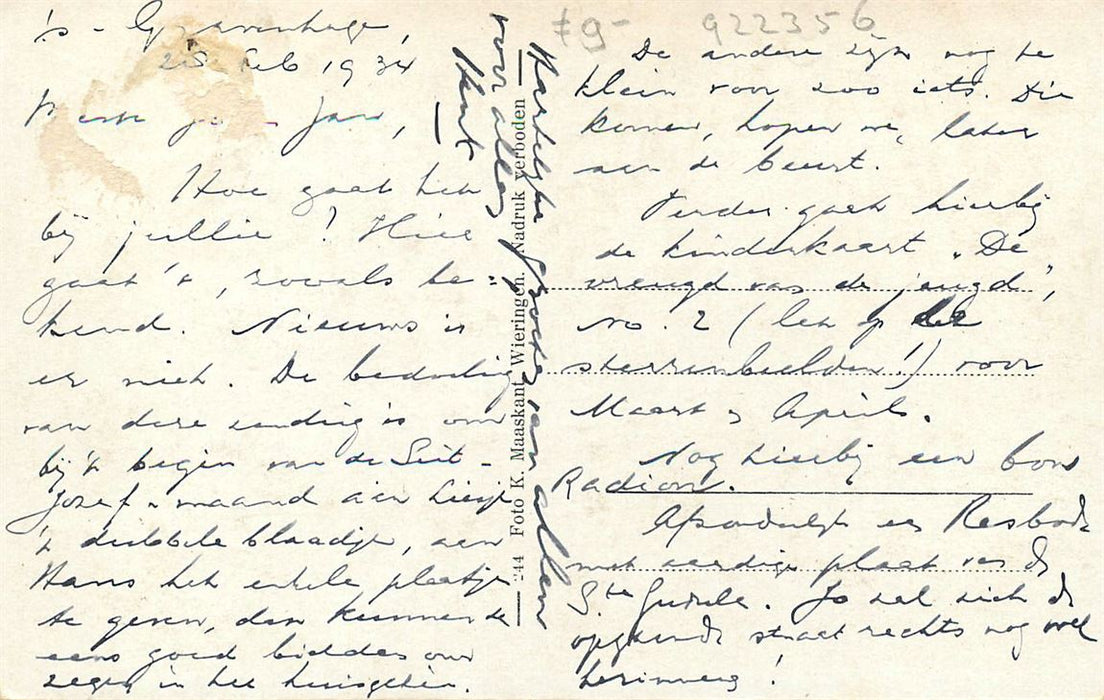 's-Gravenhage,
28 Feb 1934
Beste Jo en Jan,
Hoe gaat het
bij jullie! Hier
gaat 't, zooals be=
kend. Nieuws is
er niet. De bedoeling
van deze zending is om
bij 't begin van de Sint-
Jozef-maand aan Liesje
't dubbele blaadje, aan
Hans het enkele plaatje
te geven, dan kunnen ze
eens goed bidden om
zegen in het huisgezin.
De andere zijn nog te
klein voor zoo iets. Die
komen, hopen we, later
aan de beurt.
Verder gaat hierbij
de kinderkaart "De
vreugd van de jeugd",
no. 2 (let op de
sterrenbeelden!) voor
Maart & April.
Nog hierbij een bon
Radion.
Afzonderlijk een Resbode
met aardige plaat van de
Ste Gudule. Jo zal zich de
opgaande straat rechts nog wel
herinneren!
Hartelijke groeten van allen
voor allen
Henk
244 Foto K. Maaskant, Wieringen. Nadruk verboden
79- 922356